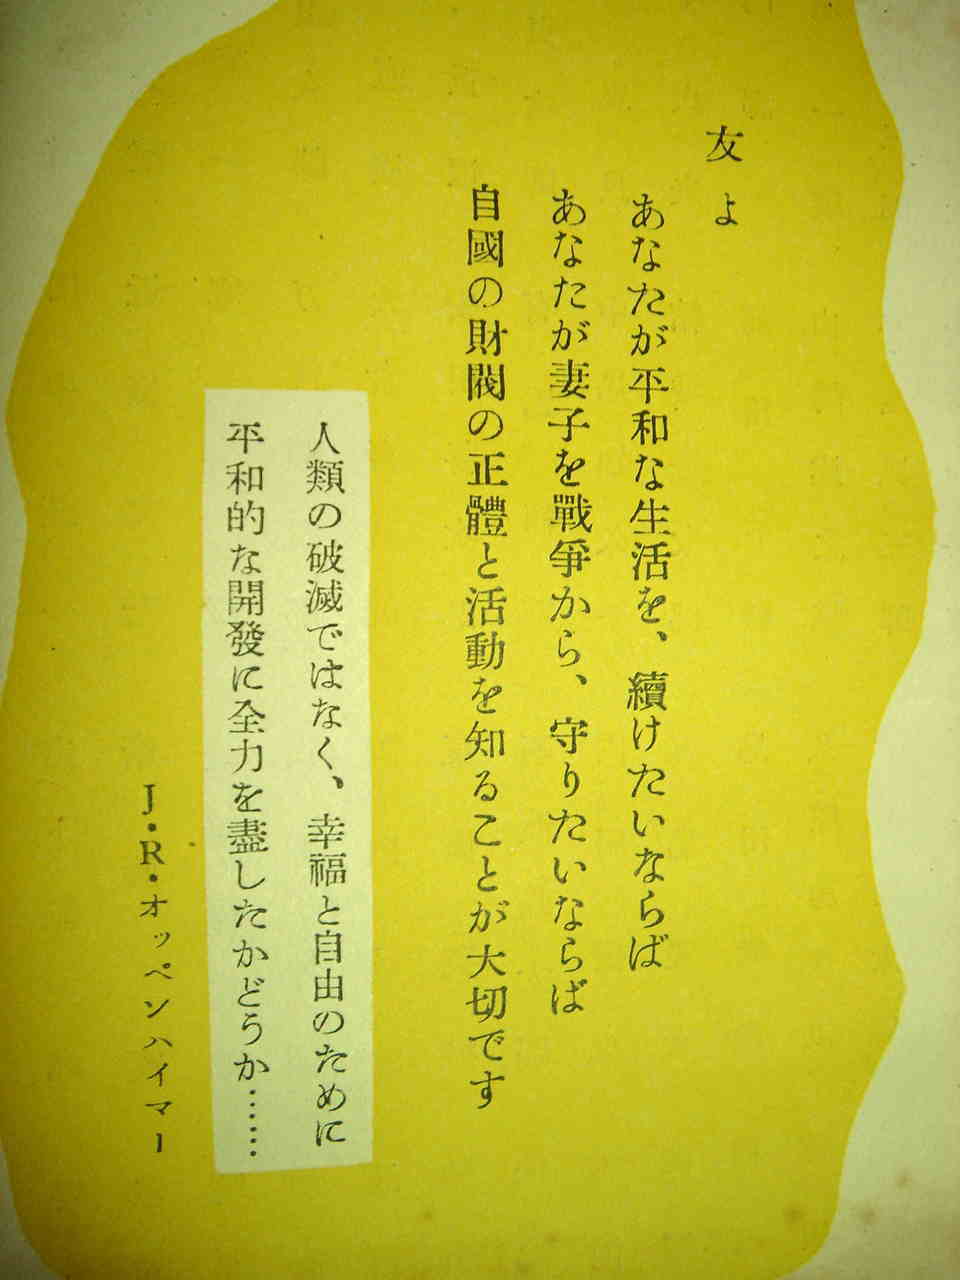 友よ
あなたが平和な生活を、續けたいならば
あなたが妻子を戰爭から、守りたいならば
自國の財閥の正體と活動を知ることが大切です
人類の破滅ではなく、幸福と自由のために
平和的な開發に全力を盡したかどうか……
J・R・オッペンハイマー